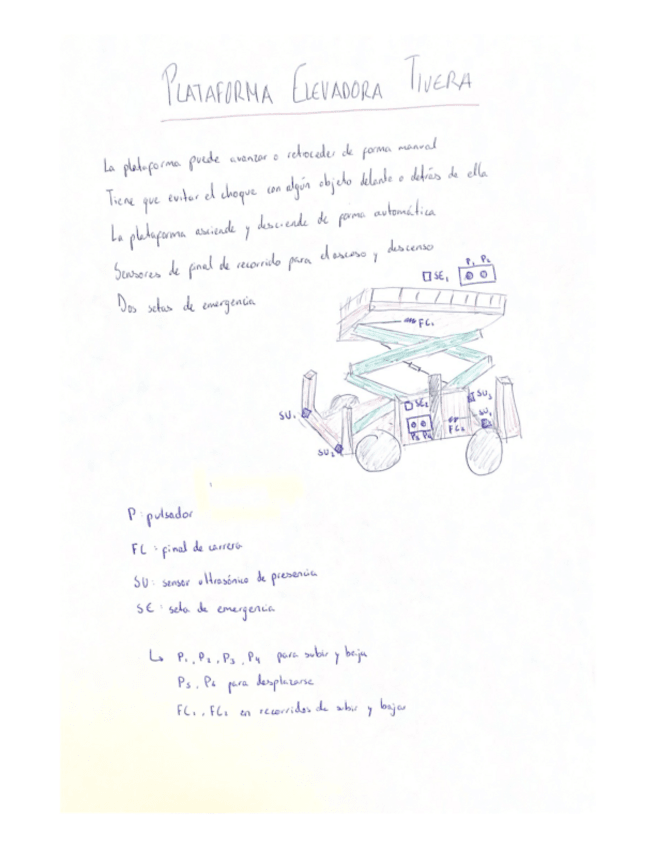 PLATAFORMA ELEVADORA TIJERA
La plataforma puede avanzar o retroceder de forma manual
Tiene que evitar el choque con algún objeto delante o detrás de ella
La plataforma asciende y desciende de forma automática
Sensores de final de recorrido para el ascenso y descenso
Dos setas de emergencia
P1 P2
SE1
FC1
SU1
SE2
SU3
SU4
P3 P4
FC2
SU2
P: pulsador
FC: final de carrera
SU: sensor ultrasónico de presencia
SE: seta de emergencia
↳ P1, P2, P3, P4 para subir y bajar
P5, P6 para desplazarse
FC1, FC2 en recorridos de subir y bajar